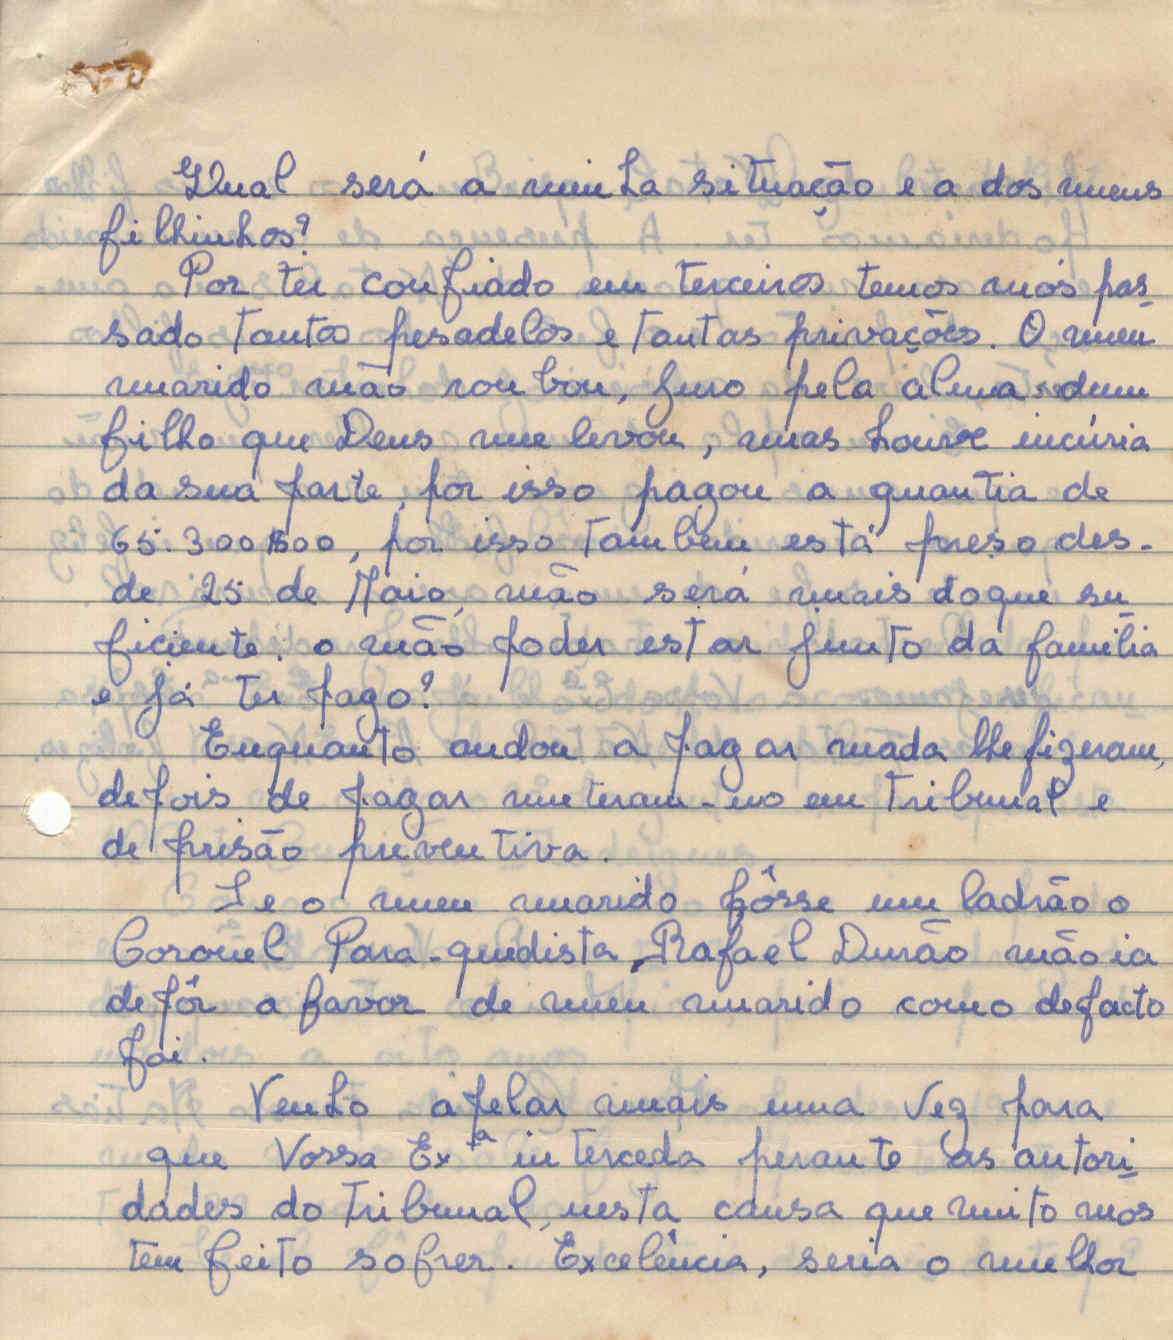 Qual será a minha situação e a dos meus
filhinhos?
Por ter confiado em terceiros temos nós pas-
sado tantos pesadelos e tantas privações. O meu
marido não roubou, juro pela alma dum
filho que Deus me levou, mas houve incúria
da sua parte, por isso pagou a quantia de
65.300$00, por isso também está preso des-
de 25 de Maio, não será mais doque su-
ficiente, o não poder estar junto da familia
e já ter pago?
Enquanto andou a pagar nada lhe fizeram,
depois de pagar meteram-no em Tribunal e
de prisão preventiva.
Se o meu marido fôsse um ladrão o
Coronel Para-quedista, Rafael Durão não ia
depôr a favor de meu marido como defacto
foi.
Venho apelar mais uma vez para
que Vossa Exª interceda perante as autori-
dades do tribunal, nesta causa que muito nos
tem feito sofrer. Excelência, seria o melhor